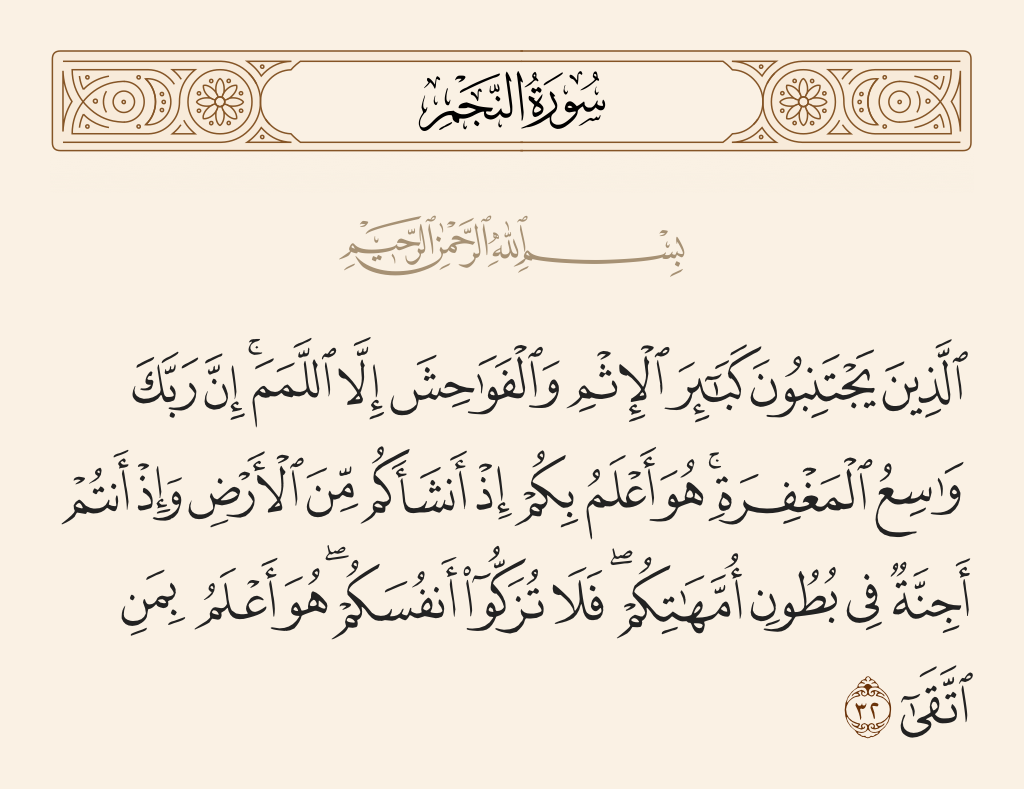 سُورَةُ النَّجۡمِ
بِسۡمِ ٱللَّهِ ٱلرَّحۡمَٰنِ ٱلرَّحِيمِ
ٱلَّذِينَ يَجۡتَنِبُونَ كَبَٰٓئِرَ ٱلۡإِثۡمِ وَٱلۡفَوَٰحِشَ إِلَّا ٱللَّمَمَۚ إِنَّ رَبَّكَ
وَٰسِعُ ٱلۡمَغۡفِرَةِۚ هُوَ أَعۡلَمُ بِكُمۡ إِذۡ أَنشَأَكُم مِّنَ ٱلۡأَرۡضِ وَإِذۡ أَنتُمۡ
أَجِنَّةٞ فِي بُطُونِ أُمَّهَٰتِكُمۡۖ فَلَا تُزَكُّوٓاْ أَنفُسَكُمۡۖ هُوَ أَعۡلَمُ بِمَنِ
ٱتَّقَىٰٓ ٣٢